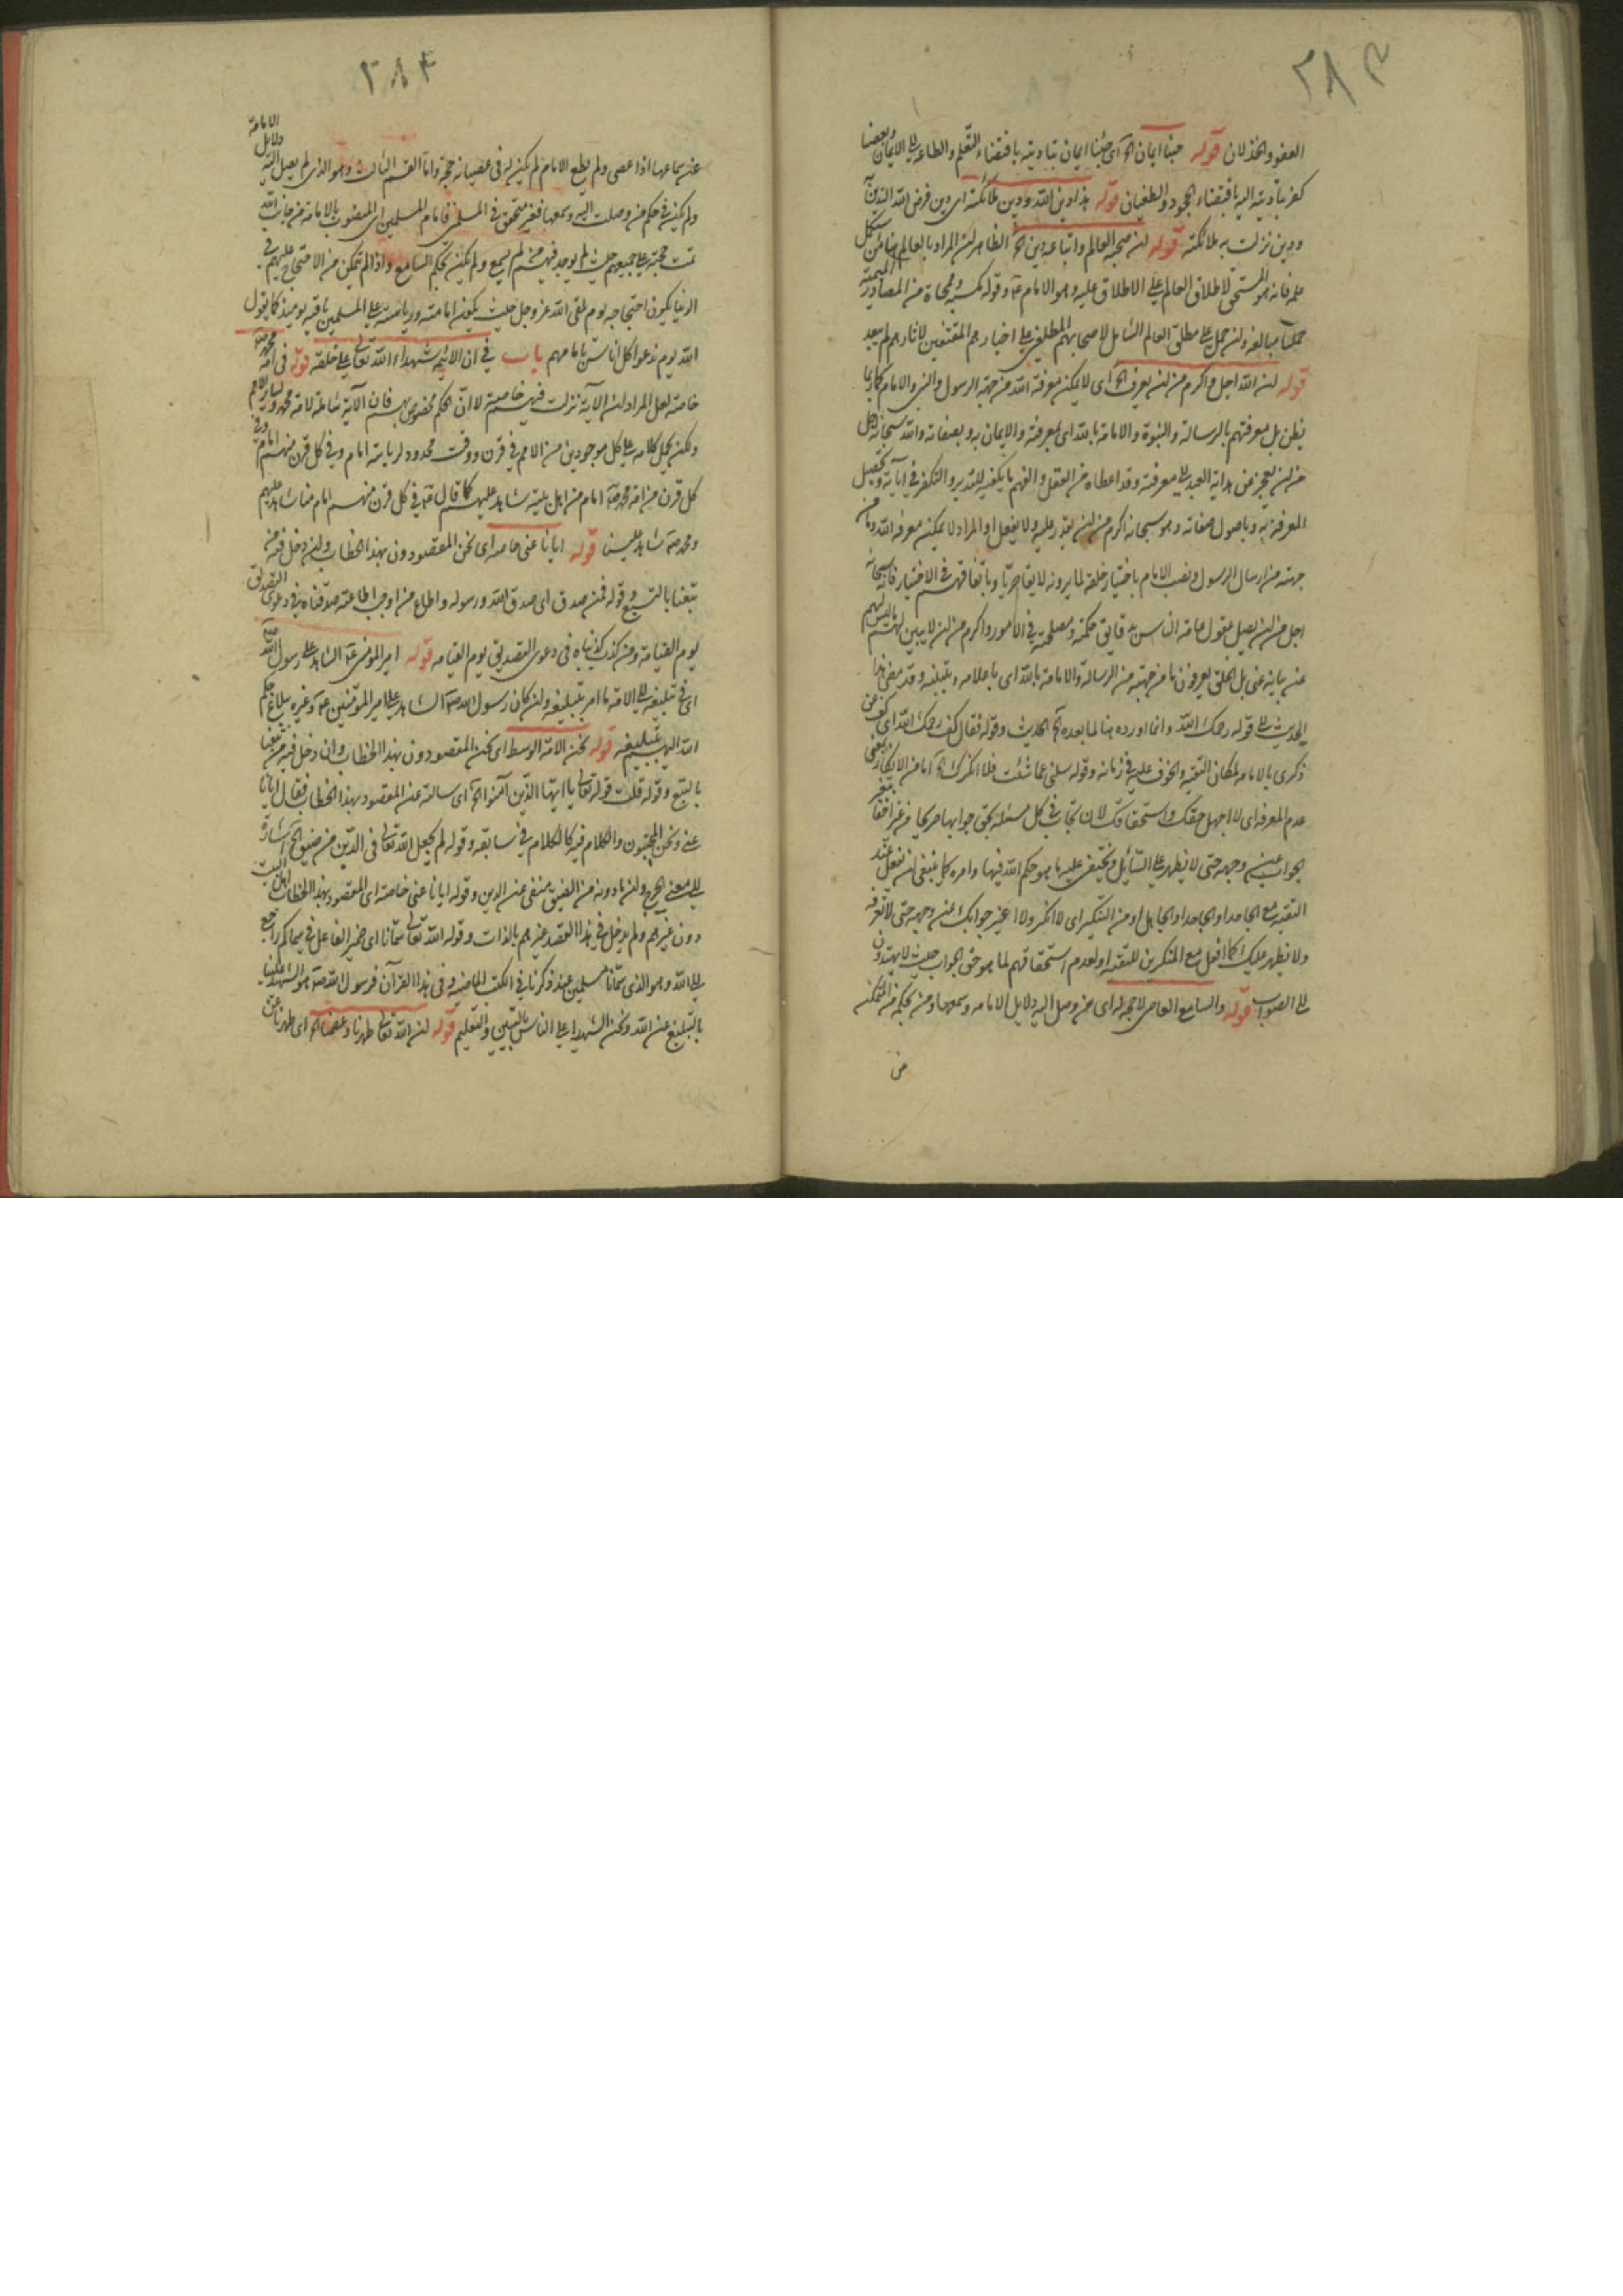 ٢٨٣
العفو والخذلان قوله حبنا ايمان الخ اى حبنا ايمان بتاديته باقتضاء التعلم والطاعة الى الايمان وبغضنا
كفر بتاديته اليه باقتضاء الجحود والطغيان قوله هذا دين الله ودين ملائكته اى دين فرض الله التدين به
ودين نزلت به ملائكته قوله ان صحبة العالم واتباعه دين الخ الظاهر ان المراد بالعالم هنا من استكمل
علمه فانه هو المستحق لاطلاق العالم على الاطلاق عليه وهو الامام عه وقوله مكسبة وممحاة من المصادر الميمية
حملتا مبالغة وان حمل على مطلق العالم الشامل لاصحابهم المطلعين على اخبارهم المقتفين لاثارهم لم يبعد
قوله ان الله اجل واكرم من ان يعرف الخ اى لا يمكن معرفة الله من جهة الرسول والنبى والامام كما ربما
يظن بل معرفتهم بالرسالة والنبوة والامامة بالله اى بمعرفته والايمان به وبصفاته والله سبحانه اجل
من ان يعجز عن هداية العبد الى معرفته وقد اعطاه من العقل والفهم ما يكفيه للتدبر والتفكر فى اياته وتحصيل
المعرفة به وباصول صفاته وهو سبحانه اكرم من ان يقدر عليه ولا يفعل او المراد لا يمكن معرفة الله من
جهته من ارسال الرسول ونصب الامام باختيار خلقه لما يرونه لايقا حريا وباتفاقهم فى الاختيار فانه سبحانه
اجل من ان يصل عقول عامة الناس بدقايق حكمته ومصلحته فى الامور واكرم من ان لا يبين لهم ما ليس لهم
عن بيانه غنى بل الخلق يعرفون ما من جهته من الرسالة والامامة بالله اى باعلامه وتبليغه وقد مضى هذا
الحديث الى قوله رحمك الله وانما اورده هنا لما بعده الخ الحديث وقوله فقال كف رحمك الله اى كف عن
ذكرى بالامامة لمكان التقية والخوف عليه فى زمانه وقوله سلنى عما شئت فلا انكرك الخ اما من الانكار بمعنى
عدم المعرفة اى لا اجهل حقك واستحقاقك لان تجاب فى كل مسئلة بحق جوابها صريحا من غير اخفاء
الجواب عن وجهه حتى لا يظهر على السائل ويختفى عليه ما هو حكم الله فيها وامره كما ينبغى ان تفعل عند
التقية مع الجاحد او الجاهل او من التنكير اى لا انكر ولا اغير جوابك عن وجهه حتى لا تعرفه
ولا يظهر عليك كما افعل مع المنكرين للتقية او لعدم استحقاقهم لما هو حق الجواب حيث لا يهتدون
الى الصواب قوله والسامع العاصى لا حجة له اى من وصل اليه دلايل الامامة وسمعها ومن بحكمه من المتمكن
من
٢٨٤
عن سماعها اذا عصى ولم يطع الامام لم يكن له فى عصيانه حجة واما القسم الثالث وهو الذى لم يصل اليه دلايل الامامة
ولم يكن فى حكم من وصلت اليه وسمعها فغير متحقق فى المسلمين فامام المسلمين اى المنصوب بالامامة من جانب الله
تمت حجته على جميعهم حيث لم يوجد فيهم من لم يسمع ولم يكن بحكم السامع واذا لم يتمكن من الاحتجاج عليهم فى
الدنيا يكون احتجاجه يوم يلقى الله عز وجل حيث يكون امامته ورياسته على المسلمين باقية يومئذ كما يقول
الله يوم ندعوا كل اناس بامامهم باب فى ان الائمة شهداء الله تعالى على خلقه قوله فى امة محمد صه
خاصة لعل المراد ان الآية نزلت فيهم خاصة لا ان الحكم مخصوص بهم فان الآية شاملة لامة محمد وساير الامم
ولكن يحمل كلامه على كل موجودين من الامم فى قرن ووقت محدود لرياسة امام وفى كل قرن منهم امام وفى
كل قرن من امة محمد صه امام من اهل بيته شاهد عليهم كما قال عه فى كل قرن منهم امام منا شاهد عليهم
ومحمد صه شاهد علينا قوله ايانا عنى خاصة اى نحن المقصودون بهذا الخطاب وان دخل فيه من
تبعنا بالتبع وقوله فمن صدق اى صدق الله ورسوله واطاع من اوجب اطاعته صدقناه فى دعوى التصديق
يوم القيامة ومن كذب كذبناه فى دعوى التصديق يوم القيامة قوله امير المؤمنين عه الشاهد على رسول الله صه
اى فى تبليغه الى الامة ما امر بتبليغه وان كان رسول الله صه الشاهد على امير المؤمنين عه وغيره ببلاغ حكم
الله اليهم بتبليغه قوله نحن الامة الوسط اى نحن المقصودون بهذا الخطاب وان دخل فيه من تبعنا
بالتبع وقوله قلت قوله تعالى يا ايها الذين آمنوا الخ اى سالته عن المقصود بهذا الخطاب فقال ايانا
عنى ونحن المجتبون والكلام فيه كالكلام فى سابقه وقوله لم يجعل الله تعالى فى الدين من ضيق الخ اشارة
الى معنى الحرج وان ما دونه من الضيق منفى عن الدين وقوله ايانا عنى خاصة اى المقصود بهذا الخطاب اهل البيت
دون غيرهم ولم يدخل فى هذا القصد غيرهم بالذات وقوله الله تعالى سمانا اى ضمير الفاعل فى سماكم راجع
الى الله وهو الذى سمانا مسلمين عند ذكرنا فى الكتب الماضية وفى هذا القرآن فرسول الله صه هو الشهيد علينا
بالتبليغ عن الله ونحن الشهداء على الناس بالتبيين والتعليم قوله ان الله تعالى طهرنا وعصمنا الخ اى طهرنا عن